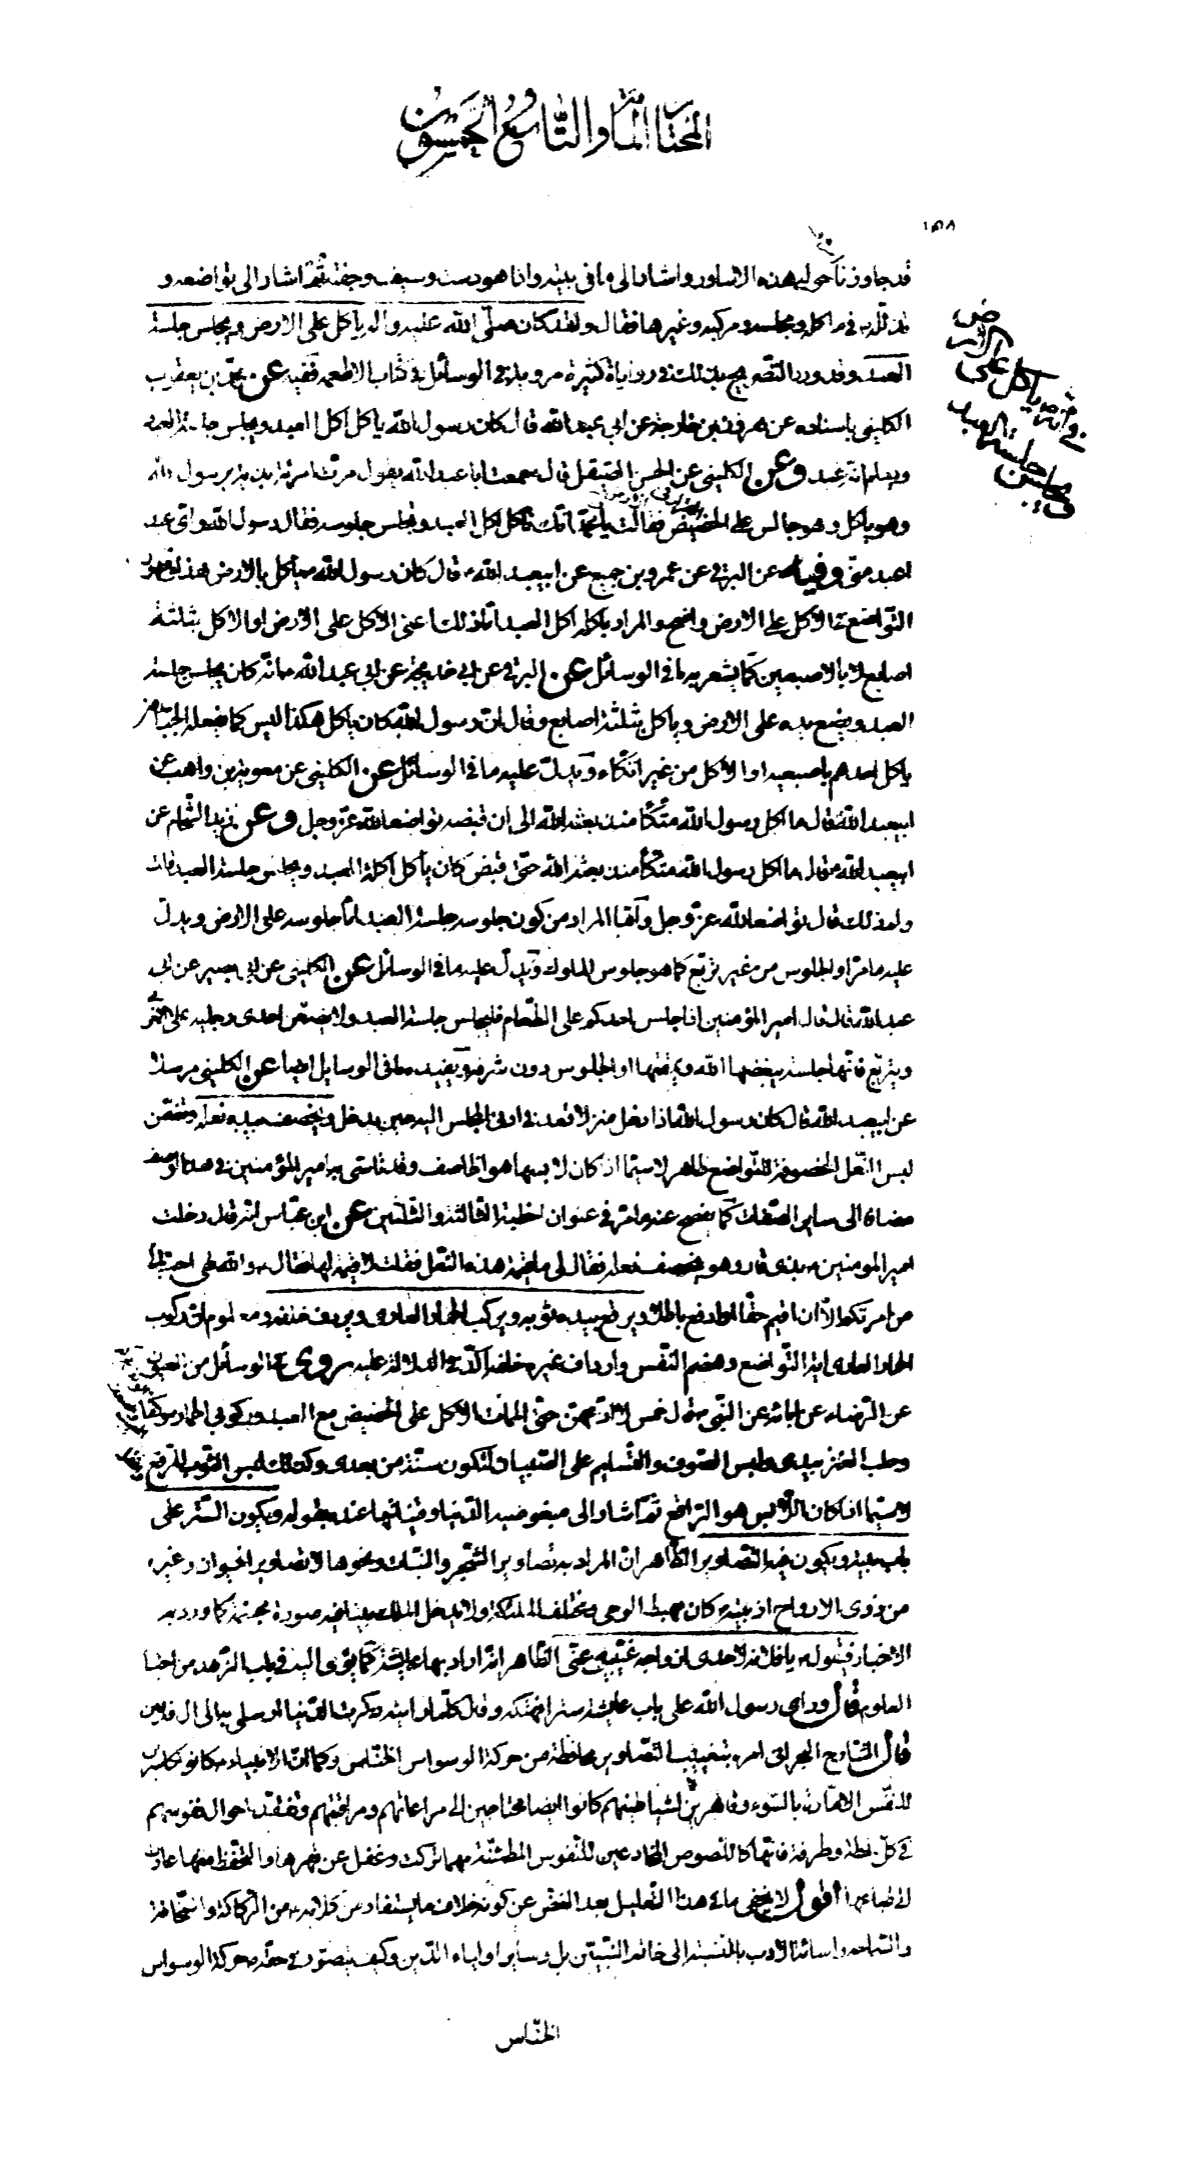 المختار المأة والتاسع والخمسون
١٥٨
قد جاوزنا حوله هذه الاساور واشار الى ما فى بيته واذا هو دست وسيف وجفنة ثم اشار الى تواضعه و
تذلله فى مأكله ومجلسه ومركبه وغيرها فقال ولقد كان صلى الله عليه واله يأكل على الارض ويجلس جلسة
العبد وقد ورد التصريح بذلك فى روايات كثيرة مروية فى الوسائل فى كتاب الاطعمة ففيه عن محمد بن يعقوب
الكلينى باسناده عن هرون بن خارجة عن ابى عبد الله قال كان رسول الله يأكل اكل العبد ويجلس جلسة العبد
ويعلم انه عبد وعن الكلينى عن الحسن الصيقل قال سمعت ابا عبد الله يقول مرت امرئة بذية برسول الله
وهو يأكل وهو جالس على الحضيض فقالت يا محمد انك تأكل اكل العبد وتجلس جلوسه فقال رسول الله واى عبد
اعبد منى وفيه عن البرقى عن عمرو بن جميع عن ابيعبد الله قال كان رسول الله يأكل بالارض هذا
التواضع فى الاكل على الارض واضح والمراد باكله اكل العبد اما ذلك اعنى الاكل على الارض او الاكل بثلثة
اصابع لا بالاصبعين كما يشعر به ما فى الوسائل عن البرقى عن ابى خديجة عن ابى عبد الله انه كان يجلس جلسة
العبد ويضع يده على الارض ويأكل بثلثة اصابع وقال ان رسول الله كان يأكل هكذا ليس كما يفعله الجبارون
يأكل احدهم باصبعيه او الاكل من غير اتكاء ويدل عليه ما فى الوسائل عن الكلينى عن معوية بن وهب عن
ابيعبد الله قال ما اكل رسول الله متكئا منذ بعثه الله الى ان قبضه تواضعا لله عز وجل وعن زيد الشحام عن
ابيعبد الله قال ما اكل رسول الله متكئا منذ بعثه الله حتى قبض كان يأكل اكلة العبد ويجلس جلسة العبد قلت
ولم ذلك قال تواضعا لله عز وجل واما المراد من كون جلوسه جلسة العبد اما جلوسه على الارض ويدل
عليه ما مر او الجلوس من غير تربع كما هو جلوس الملوك ويدل عليه ما فى الوسائل عن الكلينى عن ابى بصير عن ابى
عبد الله قال قال امير المؤمنين اذا جلس احدكم على الطعام فليجلس جلسة العبد ولا يضعن احدى رجليه على الاخرى
ويتربع فانها جلسة يبغضها الله ويمقتها او الجلوس دون شرفه ويفيده ما فى الوسايل ايضا عن الكلينى مرسلا
عن ابيعبد الله قال كان رسول الله اذا دخل منزلا قعد فى ادنى المجلس اليه حين يدخل ويخصف بيده نعله وتضمن
لبس النعل المخصوفة للتواضع ظاهر لا سيما اذ كان لابسها هو الخاصف وقد تأسى به امير المؤمنين فى هذا الوصف
مضافا الى ساير الصفات كما يفصح عنه ما مر فى عنوان الخطبة الثالثة والثلثين عن ابن عباس انه قال دخلت
امير المومنين بذى قار وهو يخصف نعله فقال لى ما قيمة هذه النعل فقلت لا قيمة لها فقال والله لهى احب الى
من امرتكم الا ان اقيم حقا او ادفع باطلا ويرقع بيده ثوبه ويركب الحمار العارى ويردف خلفه ومعلوم ان ركوب
الحمار العارى اية التواضع وهضم النفس وارداف غيره خلفه آكد فى الدلالة عليه روى فى الوسائل من العيون
عن الرضا عن ابائه عن النبى قال خمس لا ادعهن حتى الممات الاكل على الحضيض مع العبيد وركوبى الحمار موكفا
وحلب العنز بيدى ولبس الصوف والتسليم على الصبيان لتكون سنة من بعدى وكذلك لبس الثوب المرقع
لا سيما اذ كان اللابس هو الراقع ثم اشار الى مبغوضية الدنيا وقيناتها عنده بقوله ويكون الستر على
باب بيته ويكون فيه التصاوير الظاهر ان المراد به تصاوير الشجر والنبات ونحوها لا تصاوير الحيوان وغيره
من ذوى الارواح اذ بيته كان مهبط الوحى ومختلف الملئكة ولا يدخل الملك بيتا فيه صورة مجسمة كما ورد به
الاخبار فيقول يا فلانة لاحدى ازواجه غيبيه عنى الظاهر انه اراد بها عايشة كما يؤمى اليه فى باب الزهد من احيا
العلوم قال وراى رسول الله على باب عايشة سترا فهتكه وقال كلما رايته ذكرت الدنيا ارسلى به الى ال فلان
قال الشارح البحرانى امره بتغييب التصاوير محافظة من حركة الوسواس الخناس وكما ان الانبياء كانوا كاسرين
للنفس الامارة بالسوء وقاهرين لشياطينهم كانوا ايضا محتاجين الى مراعاتهم ومراقبتهم وتفقد احوال نفوسهم
فى كل لحظة وطرفة فانها كاللصوص المخادعين للنفوس المطمئنة مهما تركت وغفل عن قهرها والتحفظ منها عادت
الى طباعها اقول لا يخفى ما فى هذا التعليل بعد الغض عن كونه خلاف ما يستفاد من كلامه من الركاكة والسخافة
واسائة الادب بالنسبة الى خاتم النبيين بل وساير اولياء الدين وكيف يتصور فى حقه حركة الوسواس
الخناس